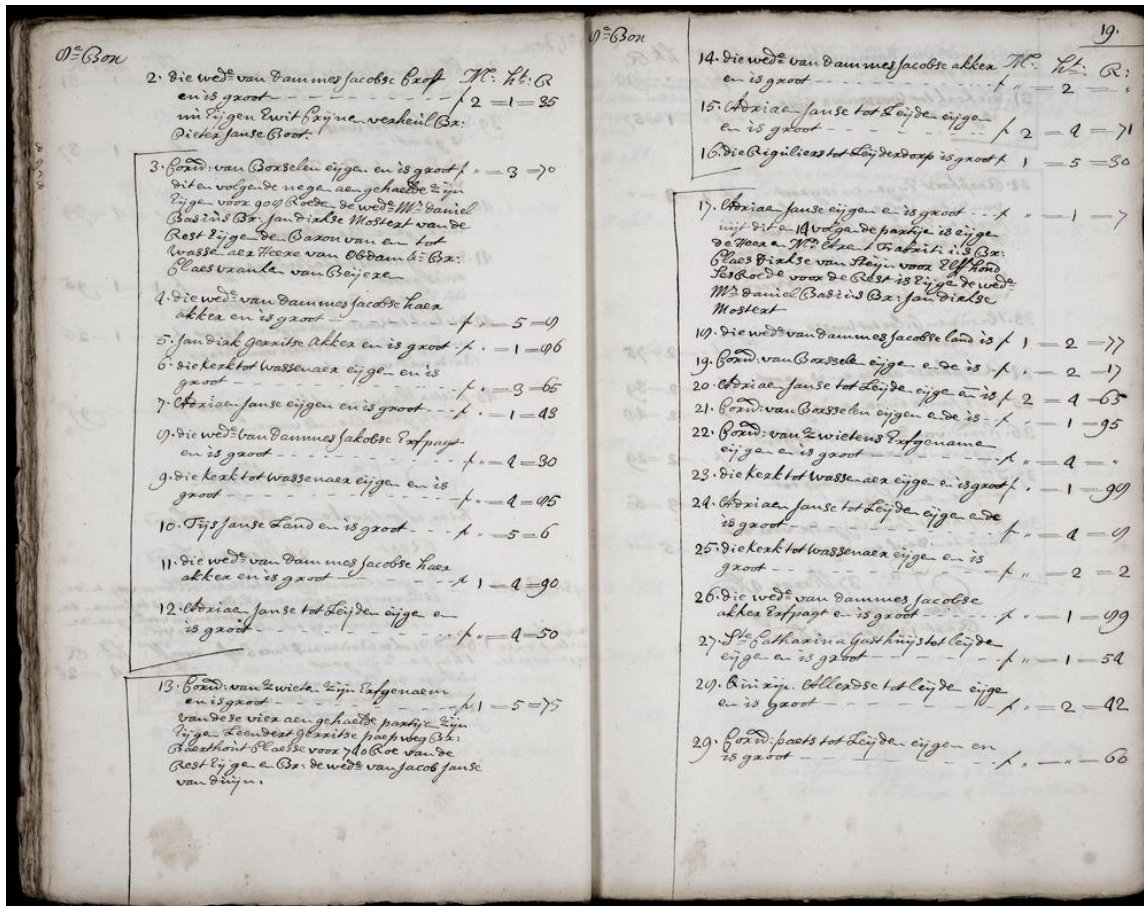 8e Bon
2. die wede van dammes Jacobse Croft M: ht: R
en is groot - - - - - f 2 = 1 = 35
nu Eygen Ewit Crijne verheul Br:
Pieter Janse Boot.
3. Cornd: van Borselen eijgen en is groot f " = 3 = 70
dit en volgende negen aen gehaelde zijn
Eijgen voor 908 Roede de wede Mr daniel
Basius Br: Jan dirkse Mostert van de
Rest Eijgen den Baron van en tot
Wassenaer Heere van Obdam &c Br:
Claes vranken van Beijeren
4. die wede van dammes Jacobse haer
akker en is groot - - - - f " = 5 = 8
5. Jan dirk Gerritse Akker en is groot . f . " = 1 = 86
6. die kerk tot wassenaer eijgen en is
groot - - - - - f " = 3 = 65
7. Adriaen Janse eijgen en is groot - - - f " = 1 = 43
8. die wede van dammes Jakobse Erfpagt
en is groot - - - - - f " = 4 = 30
9. die kerk tot wassenaer eijgen en is
groot - - - - - f " = 4 = 85
10. Tijs Janse Land en is groot - - - f " = 5 = 6
11. die wede van dammes Jacobse haer
akker en is groot - - - - f 1 = 4 = 90
12. Adriaen Janse tot Leijden eijge en
is groot - - - - - f " = 4 = 50
13. Cornd: van Zwieten zijn Erfgenaem
en is groot - - - - - f 1 = 5 = 75
van dese vier aen gehaelde partije zijn
Eijgen Leendert Gerritse paep weg Br:
Baerthout Claesse voor 740 Roe van de
Rest Eijgen en Br: de wede van Jacob Janse
van duijn.
8e Bon
19.
14. die wede van dammes Jacobse akker M: ht: R:
en is groot - - - - - f " = 2 = "
15. Adriaen Janse tot Leijden eijgen
en is groot - - - - - f 2 = 4 = 71
16. die Riguliers tot Leijderdorp is groot f 1 = 5 = 30
17. Adriaen Janse eijgen en is groot - - - f " = 1 = 7
dit en 14 volgende partije is eijge
de Heer en Mr Fabritiius Br:
Claes Dirkse van Steijn voor Elff hond
Ses Roede voor de Rest is Eijge de wede
Mr daniel Basius Br: Jan dirkse
Mostert
18. die wede van dammes Jacobse land is f 1 = 2 = 77
19. Cornd: van Borssele eijge ende is f " = 2 = 17
20. Adriaen Janse tot Leijde eijge en is f 2 = 4 = 65
21. Cornd: van Borsselen eijgen ende is - f " = 1 = 95
22. Cornd: van Zwietens Erfgename
eijgen en is groot - - - - f " = 4 = "
23. die kerk tot wassenaer eijgen en is groot f " = 1 = 98
24. Adriaen Janse tot Leijden eijgen ende
is groot - - - - - f " = 4 = 8
25. die kerk tot wassenaer eijgen en is
groot - - - - - f " = 2 = 2
26. die wede van dammes Jacobse
akker Erfpagt en is groot - - - f " = 1 = 89
27. Ste Catharina Gasthuijs tot leijde
eijgen en is groot - - - - f " = 1 = 54
28. Quirijn Allerdse tot leijde eijge
en is groot - - - - - f " = 2 = 42
29. Cornd: paets tot Leijden eijgen en
is groot - - - - - f " = " = 60